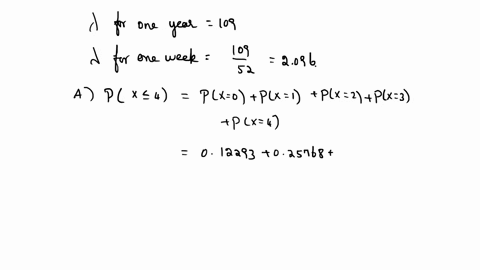 λ for one year = 109
λ for one week = 109/52 = 2.096.
A) P( x ≤ 4) = P(x=0) + P(x=1) + P(x=2) + P(x=3)
+ P(x=4)
= 0.12293 + 0.25768 +